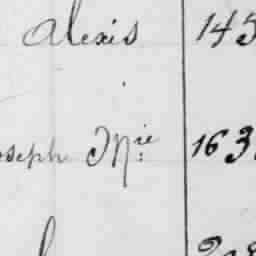 Alexis 145
oseph Mie 163